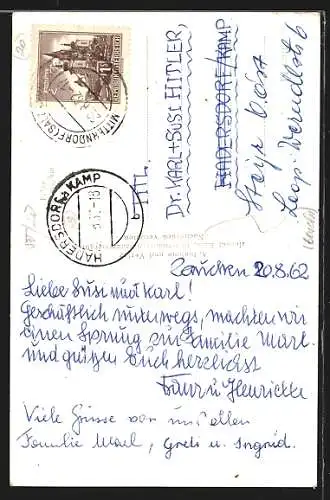 REPUBLIK ÖSTERREICH
MITTERNDORF
HADERSDORF a. KAMP
-18
b
HTL.
Dr. KARL + SUSI HITLER,
HADERSDORF/KAMP
Steyr O.Öst
Leop. Werndlstr 6
20.8.62
Liebe Susi und Karl!
Geschäftlich unterwegs, machten wir
einen Sprung zur Familie
und grüßen Euch herzlichst
Franz u. Henriette
Viele Grüsse von uns allen
Familie Greti u. Ingrid.